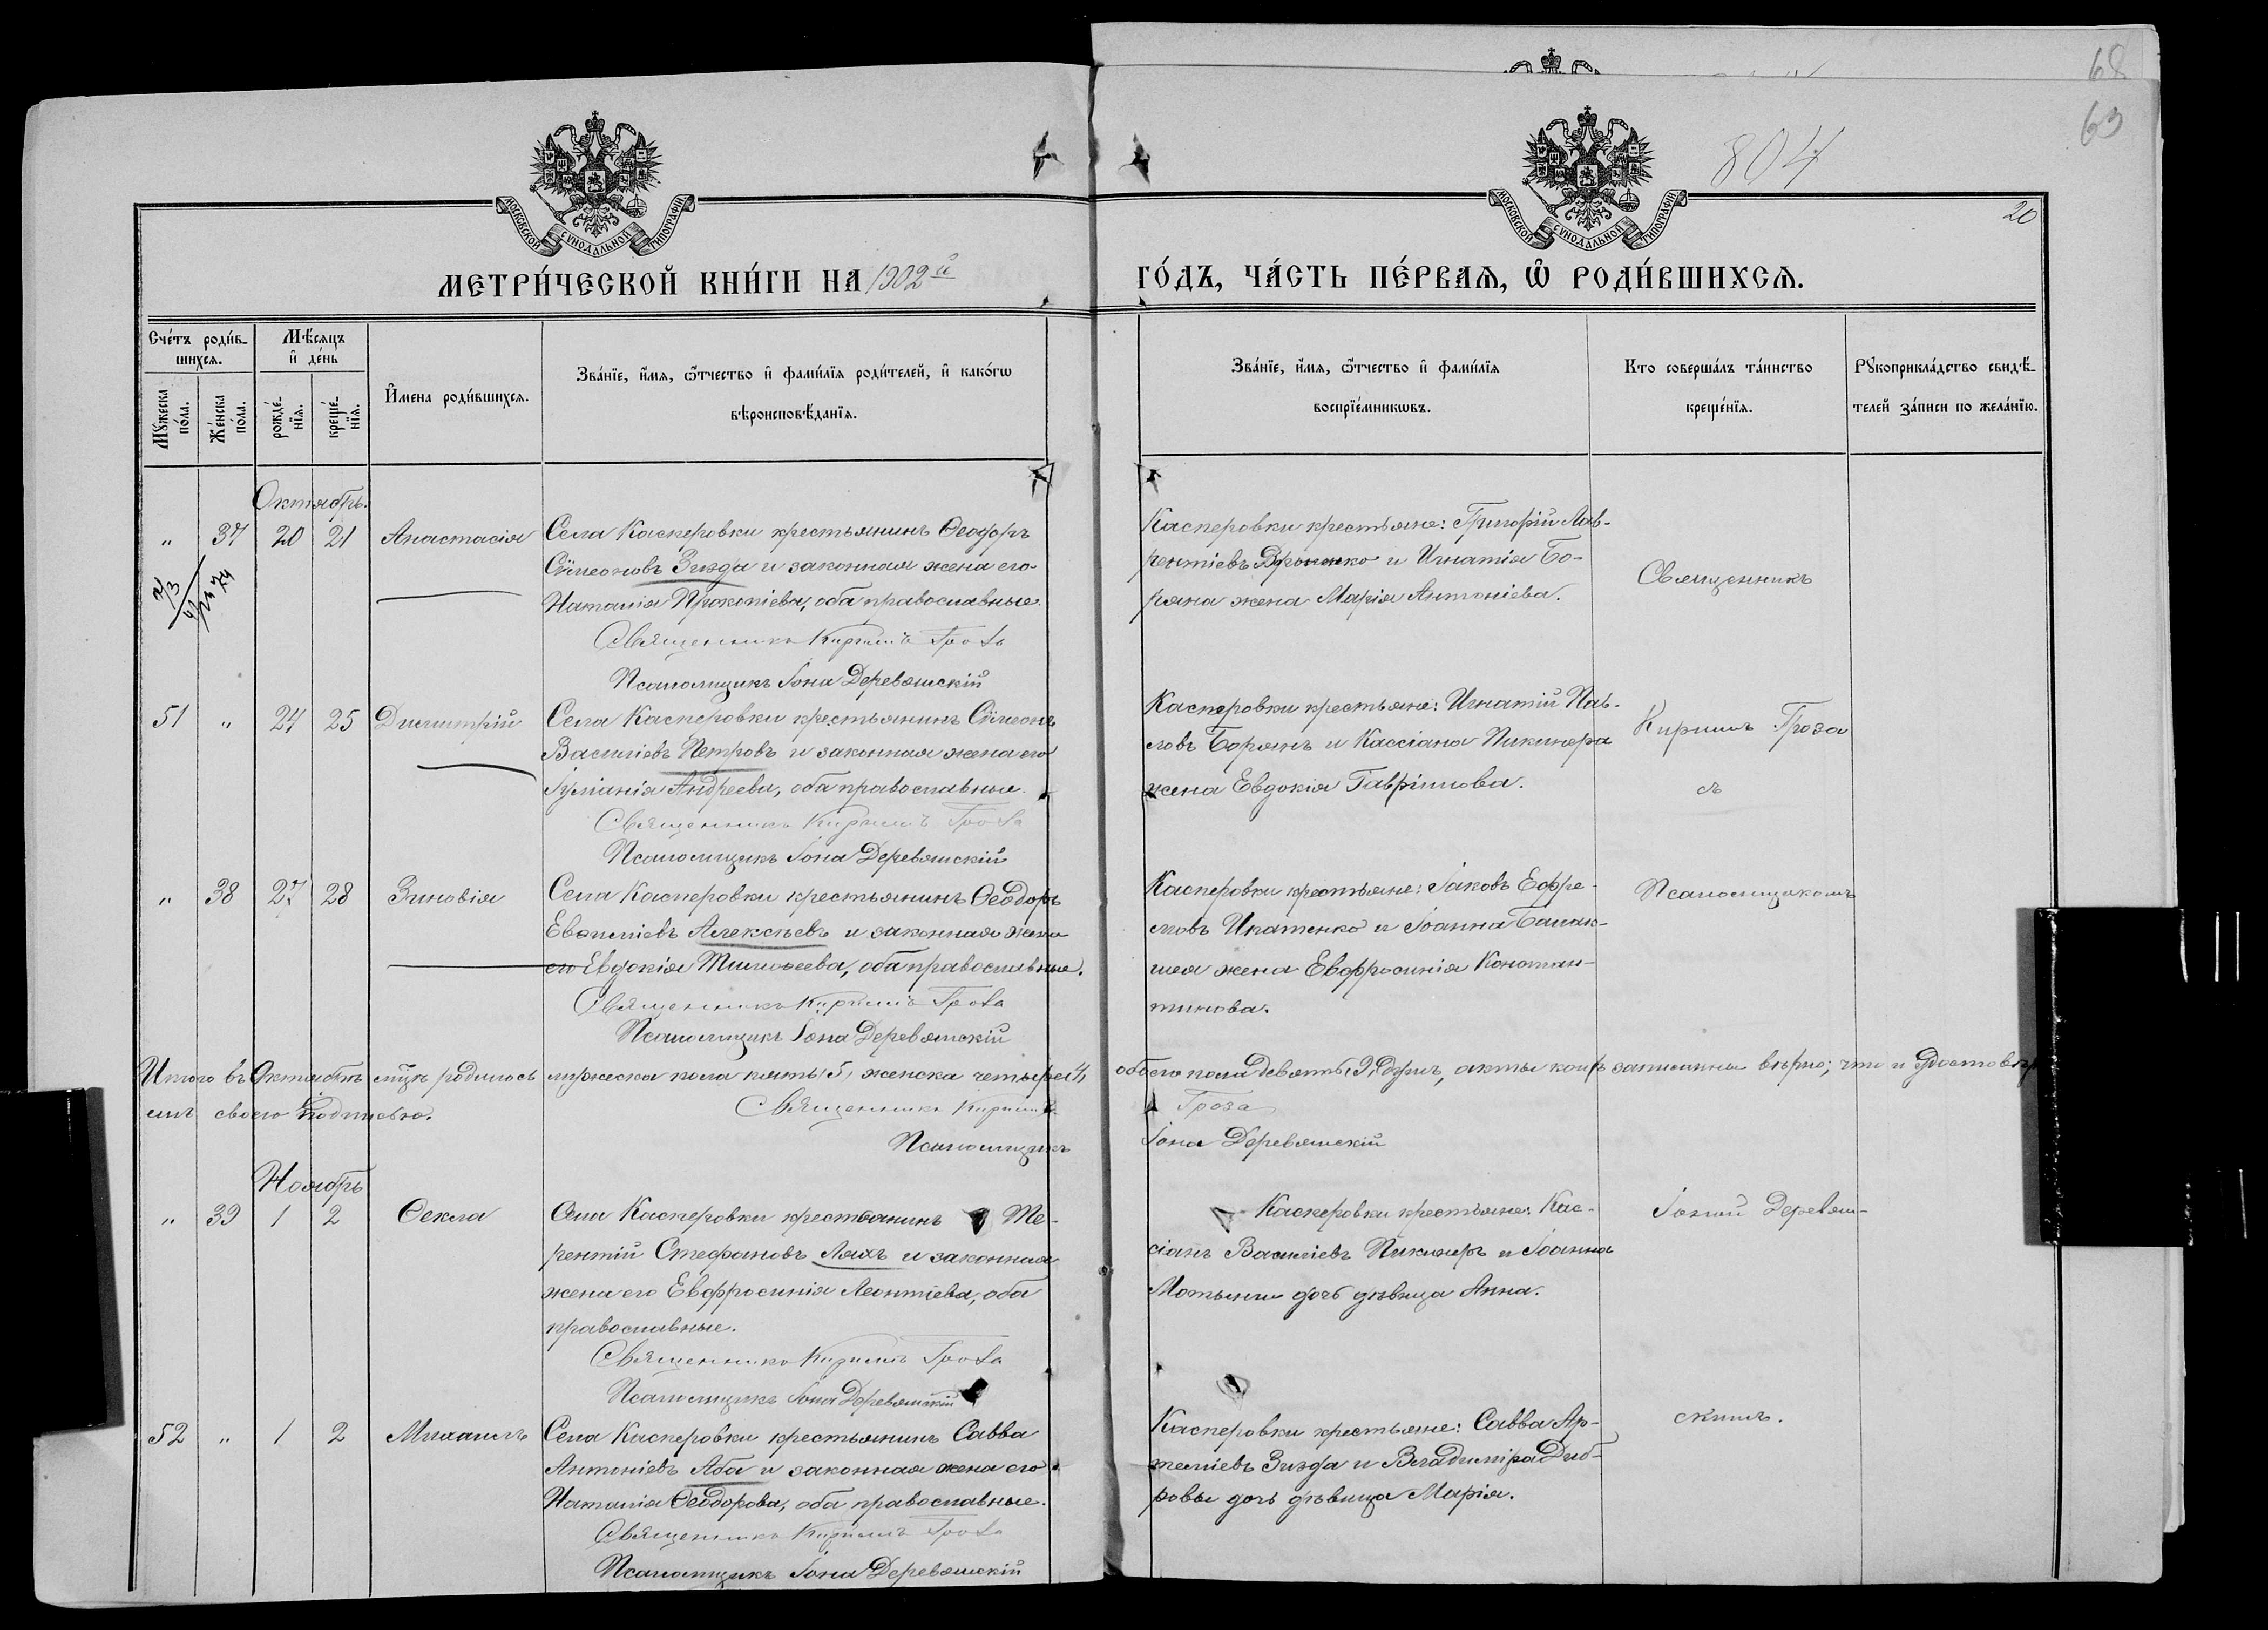 68
63
804
20
МОСКОВСКОЙ СѴНОДАЛЬНОЙ ТИПОГРАФІИ
МОСКОВСКОЙ СѴНОДАЛЬНОЙ ТИПОГРАФІИ
МЕТРИ́ЧЕСКОЙ КНИ́ГИ НА 1902й
ГО́ДЪ, ЧА́СТЬ ПЕ́РВАѦ, Ѽ РОДИ́ВШИХСѦ.
Сче́тъ роди́в-
шихсѧ.
Мꙋ́жеска по́ла.
Же́нска по́ла.
Мѣ́сяцъ
и҆ де́нь
рожде́-
нїѧ.
креще́-
нїѧ.
И҆мена роди́вшихсѧ.
Зва́нїе, и҆́мѧ, ѻ҆́тчество и҆ фами́лїѧ роди́телей, и҆ како́гѡ
вѣроисповѣ́данїѧ.
Зва́нїе, и҆́мѧ, ѻ҆́тчество и҆ фами́лїѧ
воспрїе́мникѡвъ.
Кто соверша́лъ та́инство
креще́нїѧ.
Рꙋкоприкла́дство свидѣ́-
телей за́писи по жела́нїю.
Октябрь.
" 37 20 21 Анастасія
Села Касперовки крестьянинъ Ѳеодоръ
Сѵмеоновъ Зизда и законная жена его
Наталія Прокопіева, оба православные.
Священникъ Кириллъ Гроза
Псаломщикъ Іона Деревянскій
Касперовки крестьяне: Григорій Лав-
рентіевъ и Игнатія Бо-
ряна жена Марія Антоніева.
Священникъ
51 " 24 25 Димитрій
Села Касперовки крестьянинъ Сѵмеонъ
Василіевъ Петровъ и законная жена его
Іуліанія Андреева, оба православные.
Священникъ Кириллъ Гроза
Псаломщикъ Іона Деревянскій
Касперовки крестьяне: Игнатій Пав-
ловъ Борянъ и Кассіана Пикинера
жена Евдокія Гавріилова.
Кириллъ Гроза
съ
" 38 27 28 Зиновія
Села Касперовки крестьянинъ Ѳеодоръ
Евѳиміевъ Алексѣевъ и законная жена
его Евдокія Тимоѳеева, оба православные.
Священникъ Кириллъ Гроза
Псаломщикъ Іона Деревянскій
Касперовки крестьяне: Іаковъ Ефре-
мовъ Ипатенко и Іоанна Балак-
лея жена Евфросинія Констан-
тинова.
Псаломщикомъ
Итого въ Октябрѣ мѣс. родилось мужеска пола пять (5) женска четыре (4) обоего пола девять (9) душъ, акты коихъ записаны вѣрно; что и удостовѣр
емъ своею подписью.
Священникъ Кириллъ Гроза
Псаломщикъ Іона Деревянскій
Ноябрь
" 39 1 2 Ѳекла
Села Касперовки крестьянинъ Те-
рентій Стефановъ Ляхъ и законная
жена его Евфросинія Леонтіева, оба
православные.
Священникъ Кириллъ Гроза
Псаломщикъ Іона Деревянскій
Касперовки крестьяне: Кас-
сіанъ Василіевъ Пикинеръ и Іоанна
дочь дѣвица Анна.
Іоною Деревян-
52 " 1 2 Михаилъ
Села Касперовки крестьянинъ Савва
Антоніевъ Аба и законная жена его
Наталія Ѳеодорова, оба православные.
Священникъ Кириллъ Гроза
Псаломщикъ Іона Деревянскій
Касперовки крестьяне: Савва Ар-
теміевъ Зизда и Владиміра Диб-
ровы дочь дѣвица Марія.
скимъ.